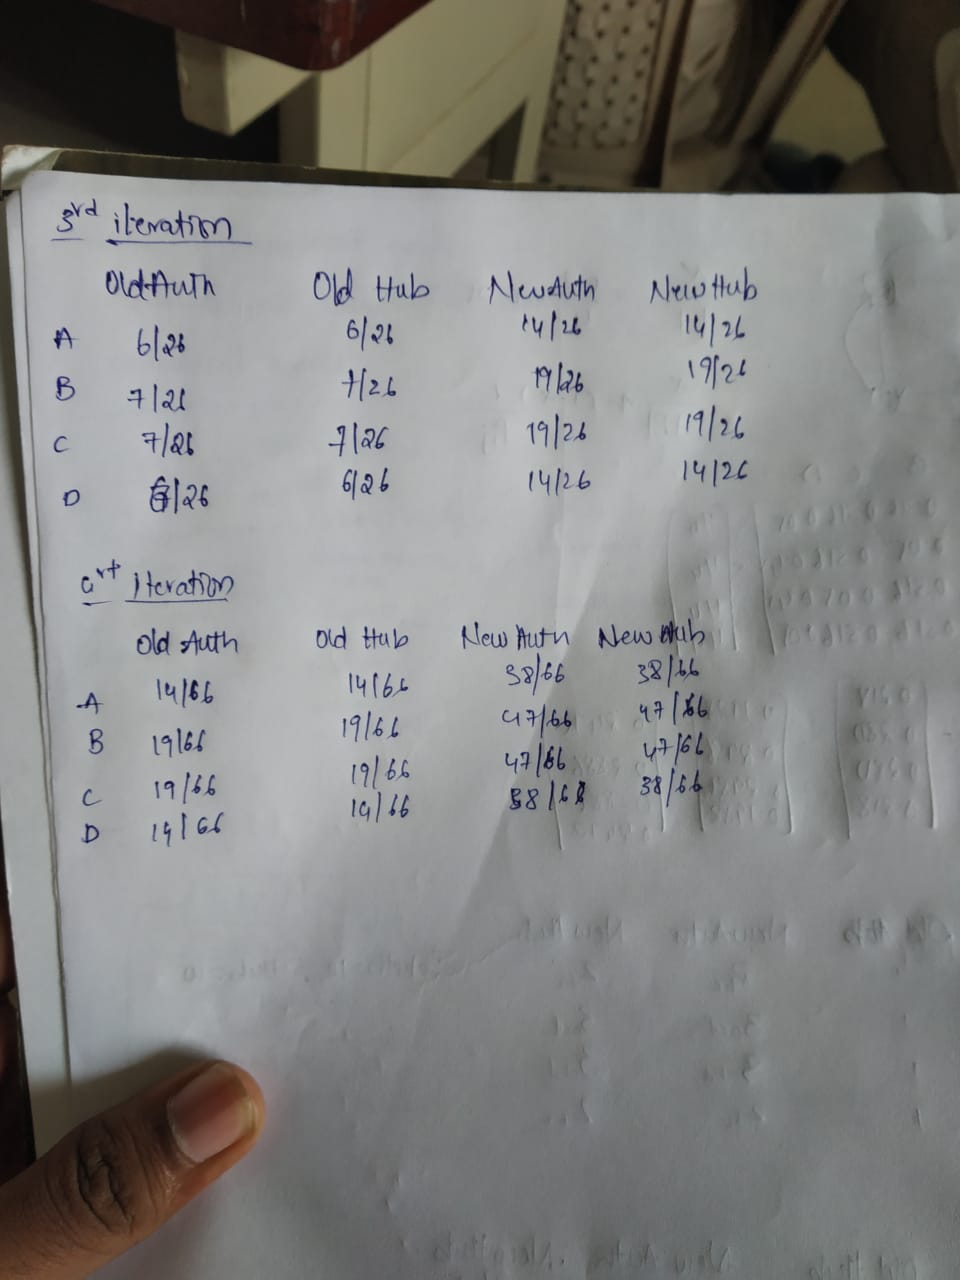 3rd iteration
Old Auth Old Hub New Auth New Hub
A 6/26 6/26 14/26 14/26
B 7/26 7/26 19/26 19/26
C 7/26 7/26 19/26 19/26
D 6/26 6/26 14/26 14/26
iteration
Old Auth Old Hub New Auth New Hub
A 14/66 14/66 38/66 38/66
B 19/66 19/66 47/66 47/66
C 19/66 19/66 47/66 47/66
D 14/66 14/66 38/66 38/66